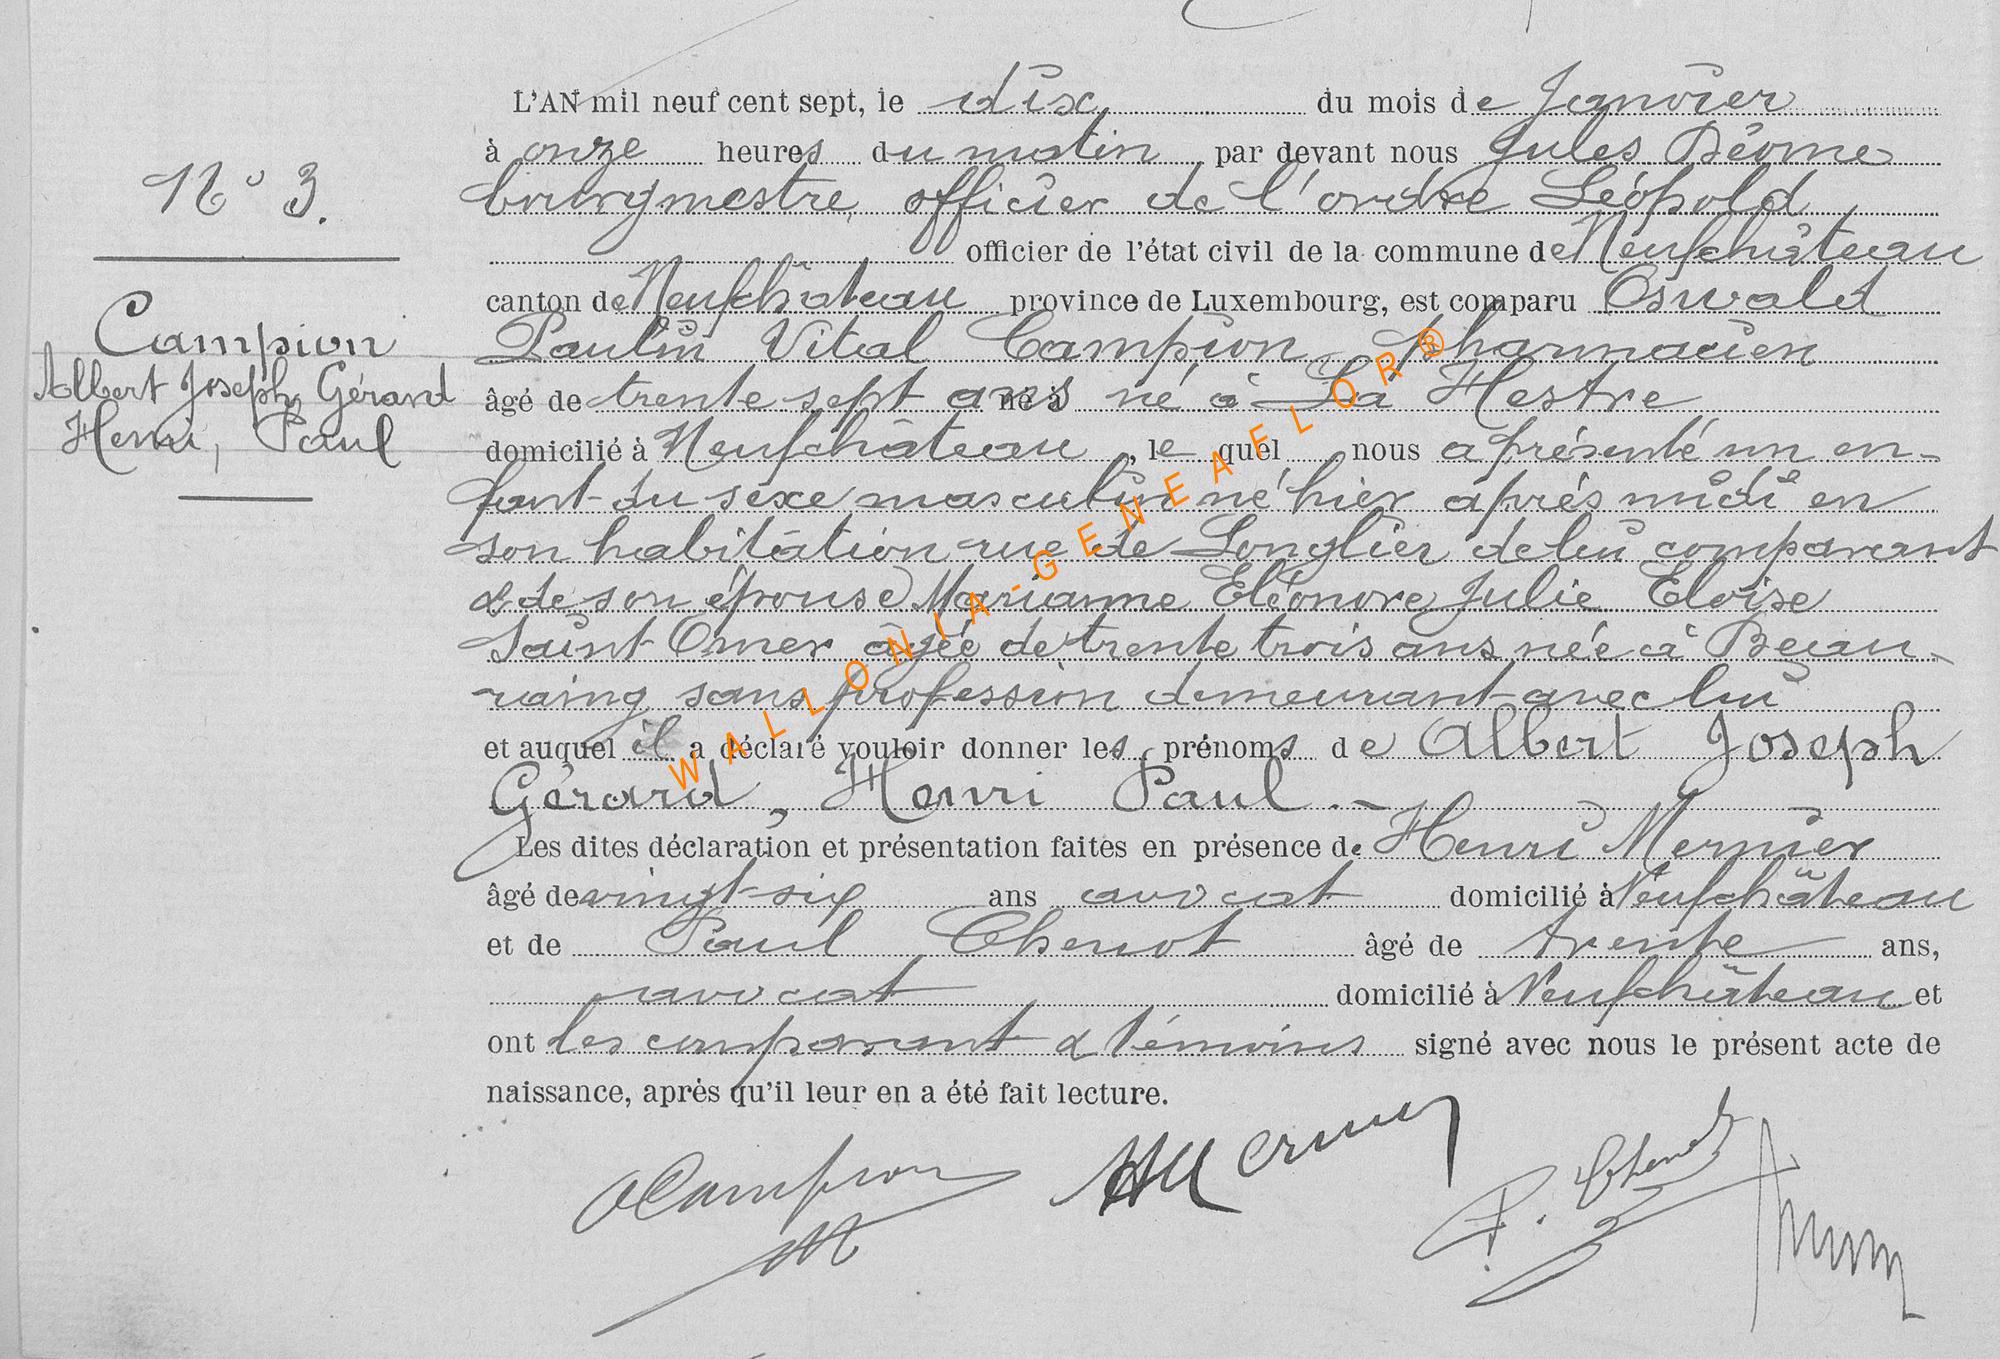 L'AN mil neuf cent sept, le dix du mois de Janvier
à onze heures du matin par devant nous Jules Béome
bourgmestre, officier de l'ordre Léopold
officier de l'état civil de la commune de Neufchâteau
canton de Neufchâteau province de Luxembourg, est comparu Oswald
N° 3.
Paulin Vital Campion, pharmacien
âgé de trente sept ans né à né à La Hestre
domicilié à Neufchâteau, le quel nous a présenté un en-
fant du sexe masculin né hier après midi en
son habitation rue de Longlier de lui comparant
& de son épouse Marianne Eléonore Julie Eloïse
Saint Omer âgée de trente trois ans née à Beau-
raing sans profession demeurant avec lui
et auquel il a déclaré vouloir donner les prénoms de Albert Joseph
Gérard, Henri Paul.-
Campion
Albert Joseph, Gérard
Henri, Paul
Les dites déclaration et présentation faites en présence de Henri Mernier
âgé de vingt-six ans avocat domicilié à Neufchâteau
et de Paul Chenot âgé de trente ans,
avocat domicilié à Neufchâteau et
ont les comparant & témoins signé avec nous le présent acte de
naissance, après qu'il leur en a été fait lecture.
OCampion
HMernier
P. Chenot
WALLONIA-GENEAFLOR®